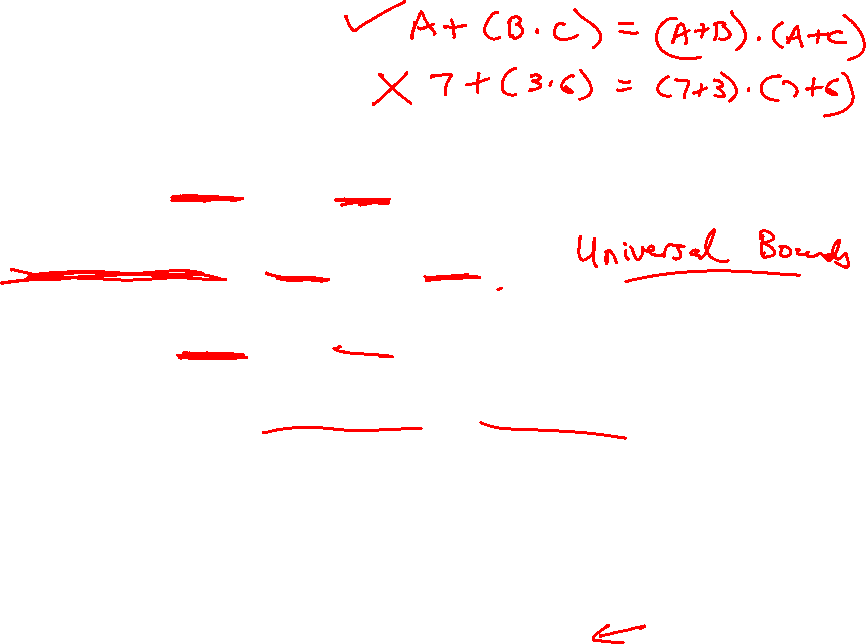 ✓ A + (B · C) = (A+B) · (A+C)
✗ 7 + (3 · 6) = (7+3) · (7+6)
Universal Bounds